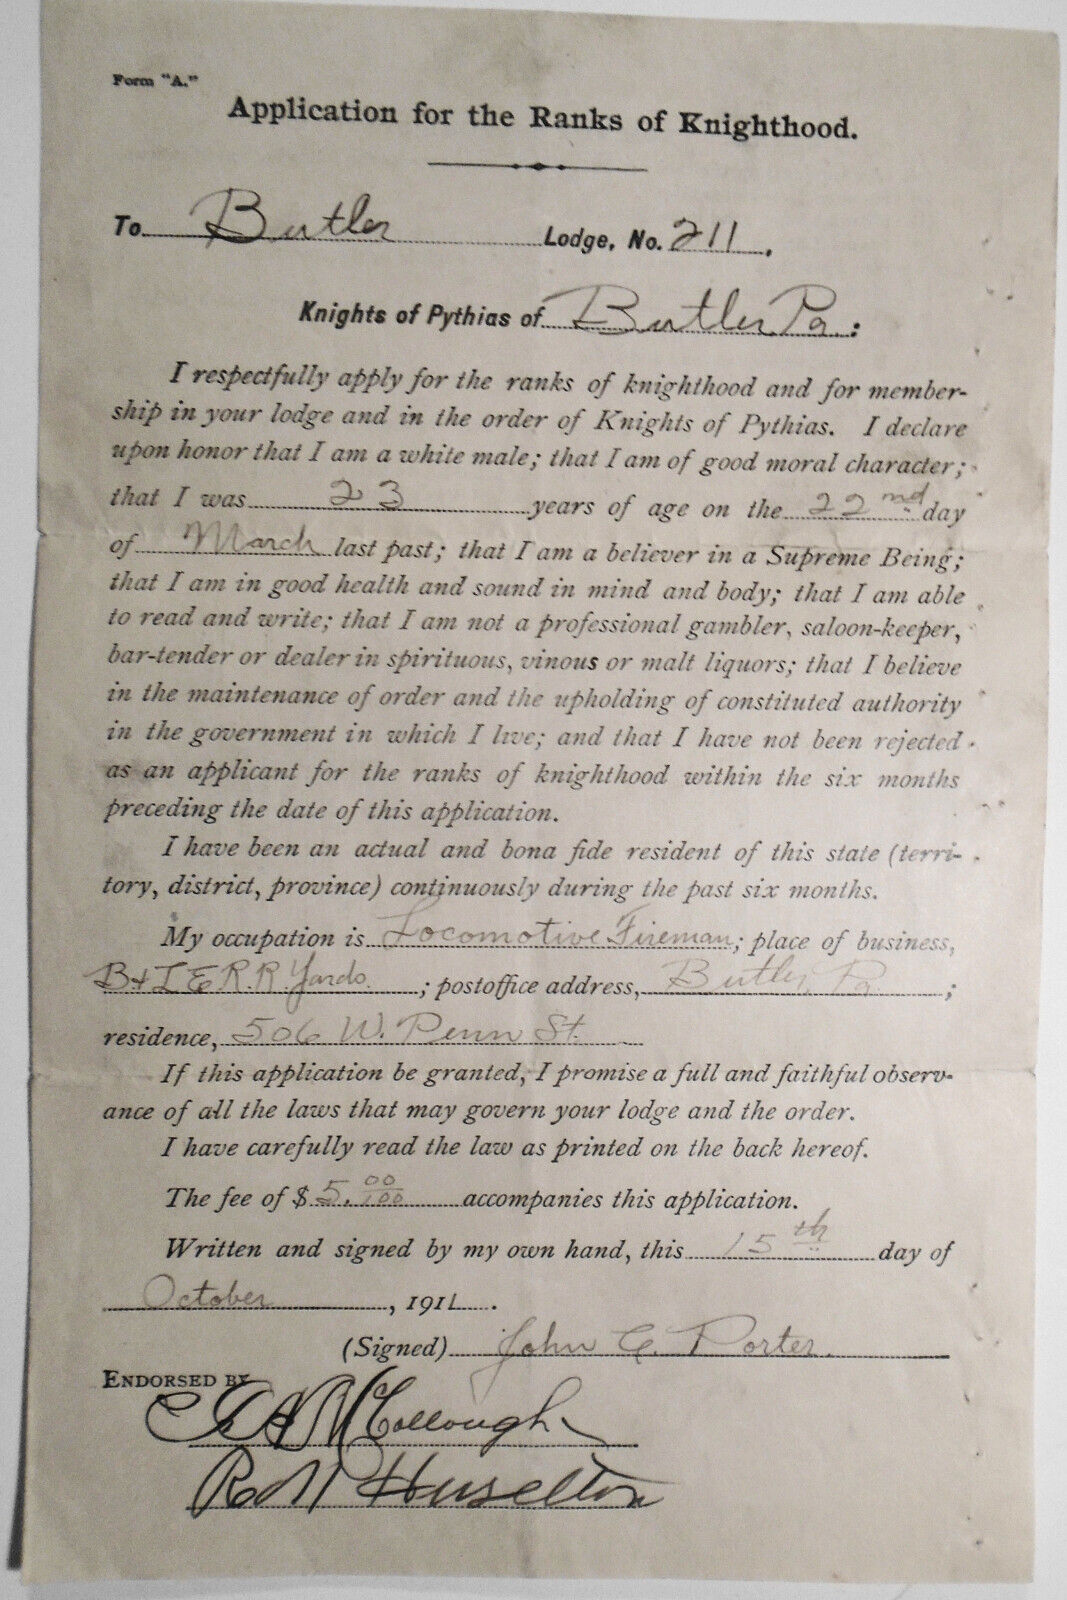 Form "A."
Application for the Ranks of Knighthood.
To Butler Lodge, No. 211.
Knights of Pythias of Butler Pa:
I respectfully apply for the ranks of knighthood and for member-
ship in your lodge and in the order of Knights of Pythias. I declare
upon honor that I am a white male; that I am of good moral character;
that I was 23 years of age on the 22nd day
of March last past; that I am a believer in a Supreme Being;
that I am in good health and sound in mind and body; that I am able
to read and write; that I am not a professional gambler, saloon-keeper,
bar-tender or dealer in spirituous, vinous or malt liquors; that I believe
in the maintenance of order and the upholding of constituted authority
in the government in which I live; and that I have not been rejected
as an applicant for the ranks of knighthood within the six months
preceding the date of this application.
I have been an actual and bona fide resident of this state (terri-
tory, district, province) continuously during the past six months.
My occupation is Locomotive Fireman; place of business,
B+LE R.R Yards; postoffice address, Butler, Pa.;
residence, 506 W. Penn St.
If this application be granted, I promise a full and faithful observ-
ance of all the laws that may govern your lodge and the order.
I have carefully read the law as printed on the back hereof.
The fee of $5.00/100 accompanies this application.
Written and signed by my own hand, this 15th day of
October, 1911.
(Signed) John C. Porter.
ENDORSED BY
McCollough
Huselton